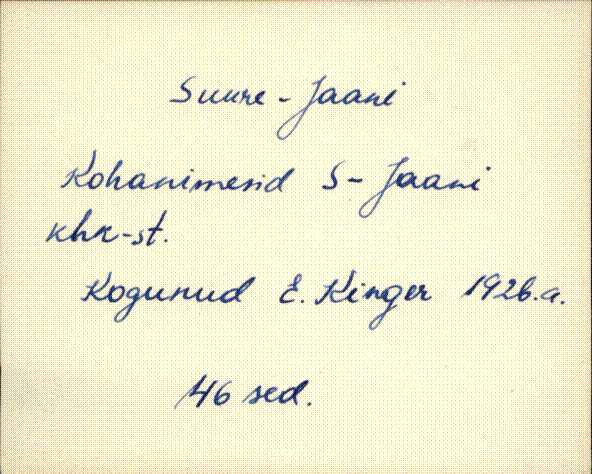 Suure-Jaani
Kohanimesid S-Jaani
khk-st.
Kogunud E. Kinger 1926.a.
46 sed.